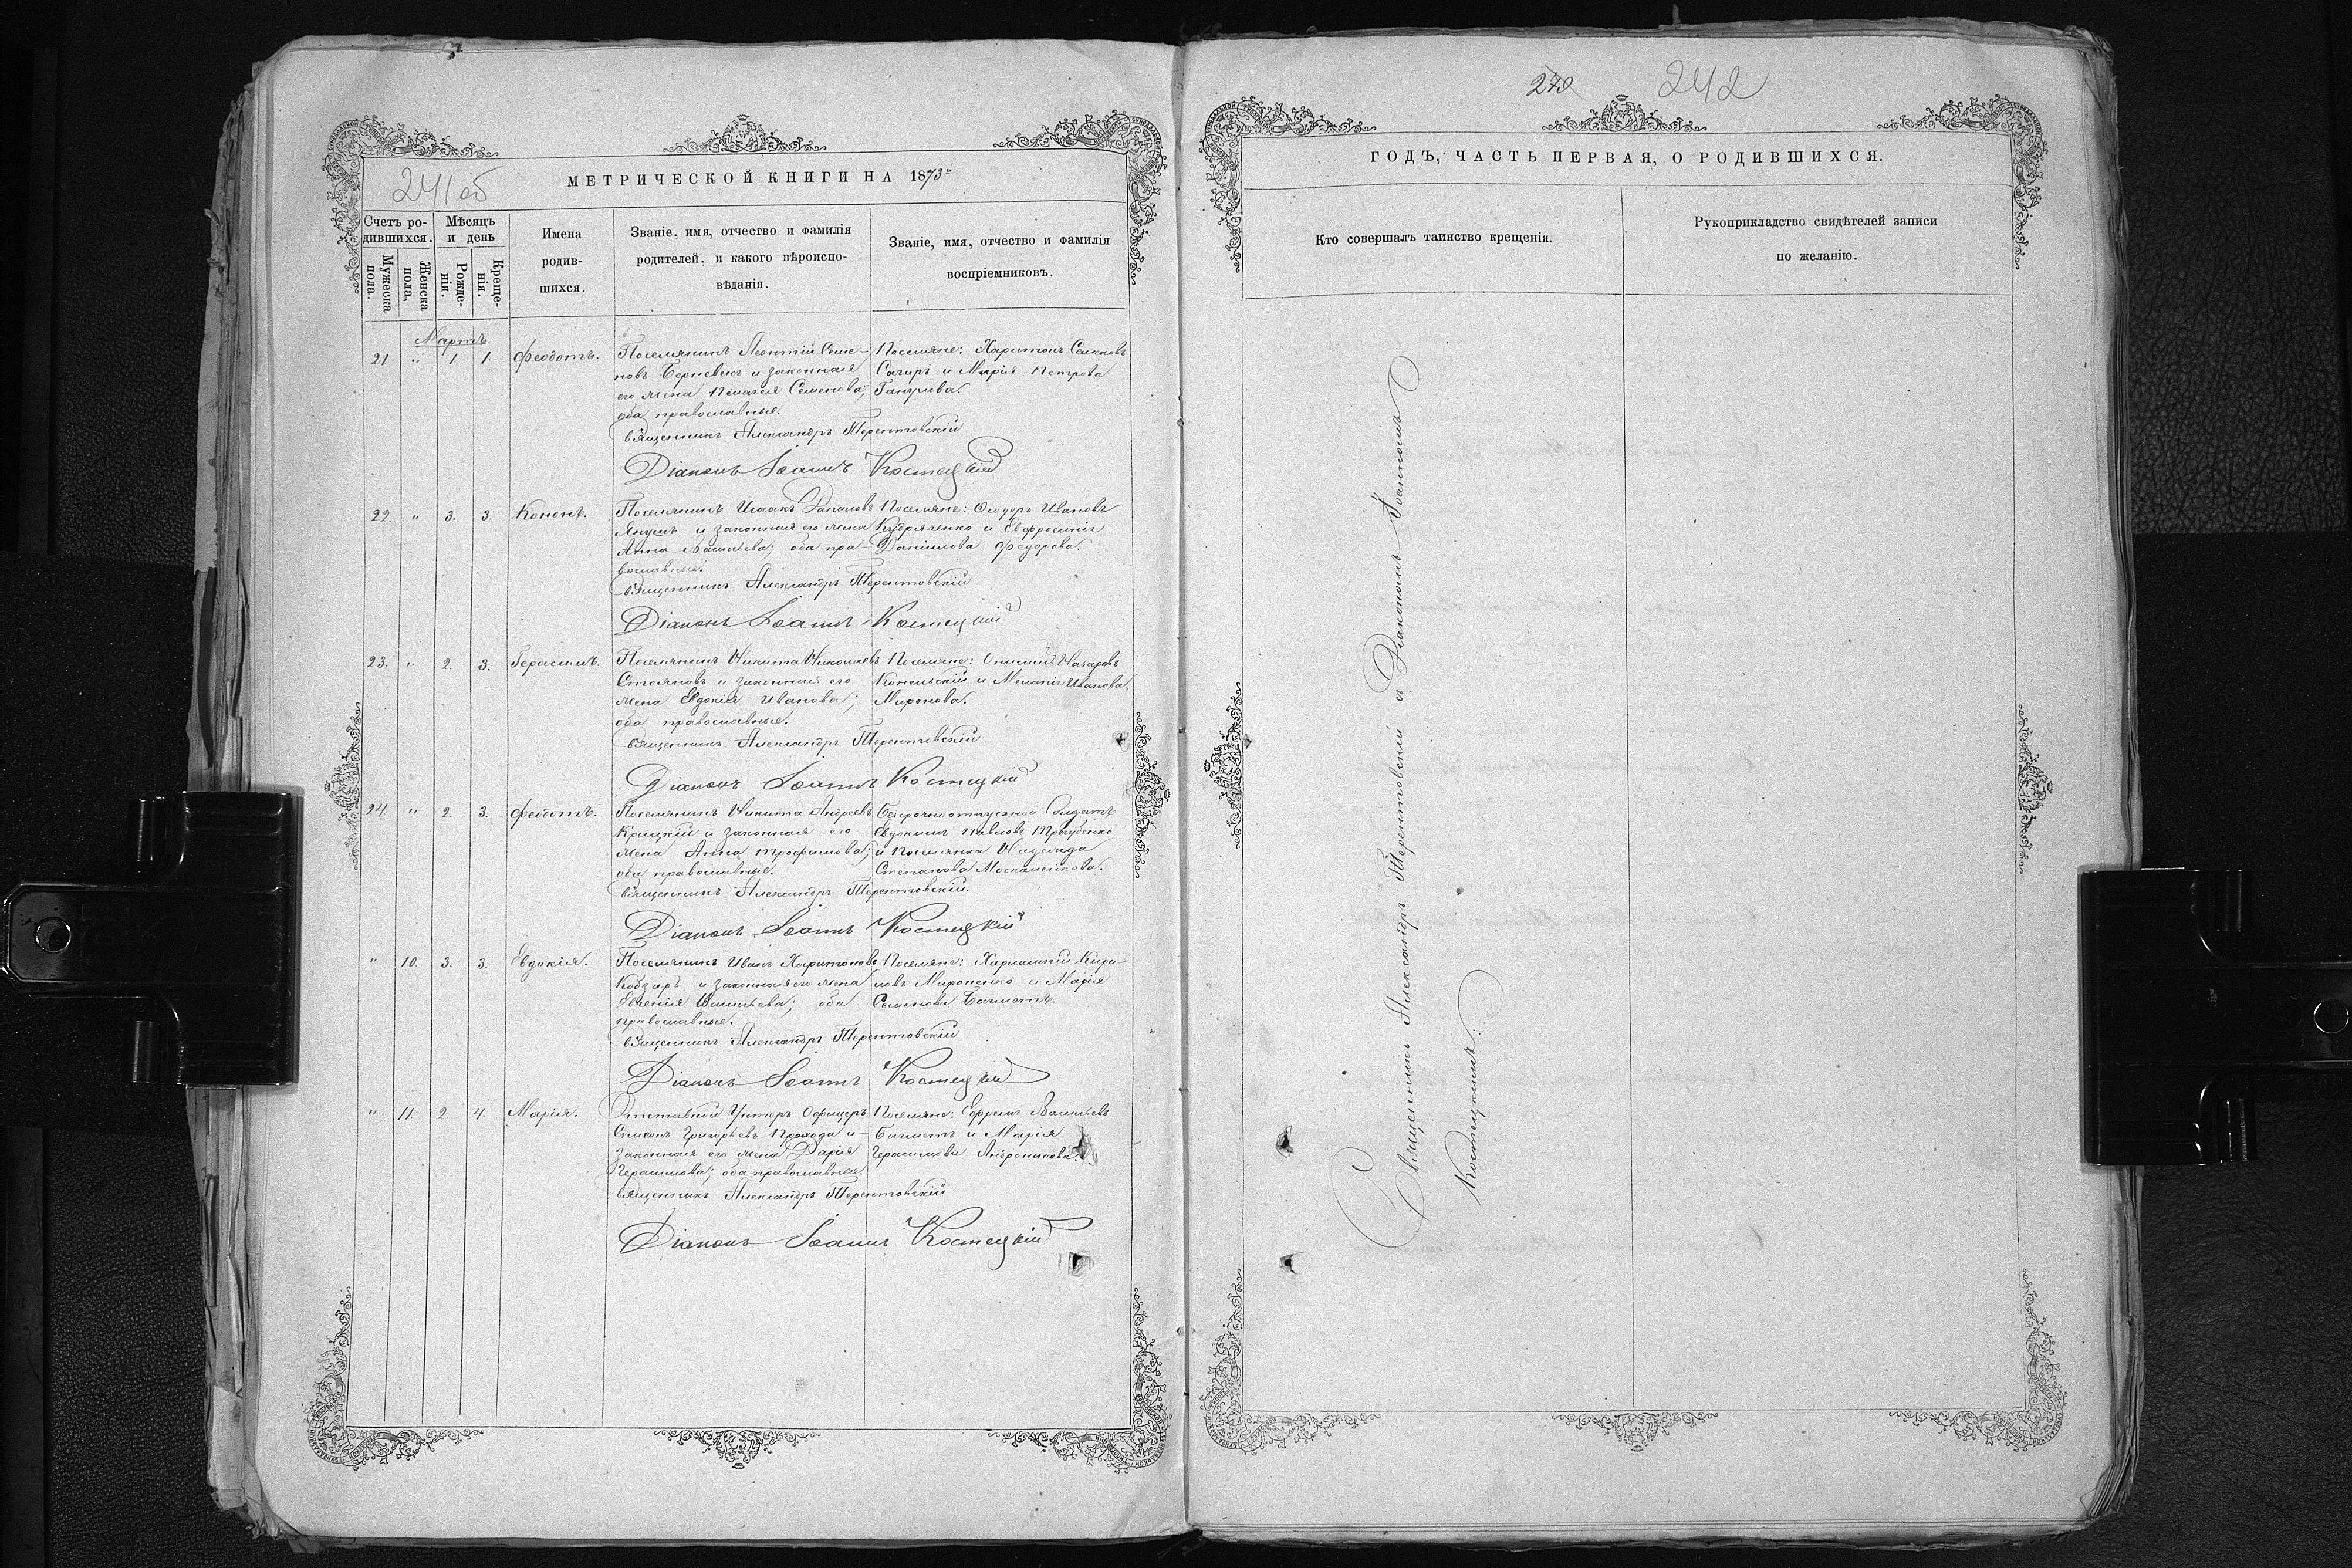 241об
МЕТРИЧЕСКОЙ КНИГИ НА 1873й
Счетъ ро-
дившихся.
Мужеска
пола.
Женска
пола,
Мѣсяцъ
и день
Рожде-
нія.
Креще-
нія.
Имена
родив-
шихся.
Званіе, имя, отчество и фамилія
родителей, и какого вѣроиспо-
вѣданія.
Званіе, имя, отчество и фамилія
воспріемниковъ.
Мартъ.
21. " 1 1. Феодотъ.
Поселянинъ Леонтій Семе-
новъ и законная
его жена Пелагея Семенова;
оба православные.
Поселяне: Харитонъ Семеновъ
и Марія Петрова
Священникъ Александръ Терентовскій
Діаконъ Іоаннъ Костецкій
22. " 3. 3. Кононъ.
Поселянинъ Исаакъ
и законная его жена
Анна Васильева; оба пра-
вославные.
Поселяне: Ѳеодоръ Ивановъ
Кудряченко и Евфросинія
Даніилова Федорова.
Священникъ Александръ Терентовскій
Діаконъ Іоаннъ Костецкій
23. " 2. 3. Герасимъ.
Поселянинъ Никита Николаевъ
Стояновъ и законная его
жена Евдокія Иванова;
оба православные.
Поселяне: Онисим Назаровъ
Конельскій и Меланія Иванова
Миронова.
Священникъ Александръ Терентовскій
Діаконъ Іоаннъ Костецкій
24 " 2. 3. Феодотъ.
Поселянинъ Никита Андреевъ
Крицкій и законная его
жена Анна Трофимова;
оба православные.
Безсрочноотпускной Солдатъ
Евдокимъ Павловъ Трегубенко
и Поселянка Надежда
Степанова Москаленкова.
Священникъ Александръ Терентовскій.
Діаконъ Іоаннъ Костецкій
" 10. 3. 3. Евдокія.
Поселянинъ Иванъ Харитоновъ
Кобзарь и законная его жена
Евгенія Васильева; оба
православные.
Поселяне: Харлампій Кири-
ловъ Мироненко и Марія
Семенова
Священникъ Александръ Терентовскій
Діаконъ Іоаннъ Костецкій
" 11. 2. 4. Марія.
Отставной Унтеръ Офицеръ
Симеонъ Григорьевъ Прохода и
законная его жена Дарія
Герасимова; оба православные.
Поселяне: Ефремъ Васильевъ
и Марія
Герасимова Андроникова.
Священникъ Александръ Терентовскій
Діаконъ Іоаннъ Костецкій
242
ГОДЪ, ЧАСТЬ ПЕРВАЯ, О РОДИВШИХСЯ.
Кто совершалъ таинство крещенія.
Рукоприкладство свидѣтелей записи
по желанію.
Священникъ Александръ Терентовскій съ Діакономъ Іоанномъ
Костецкимъ.